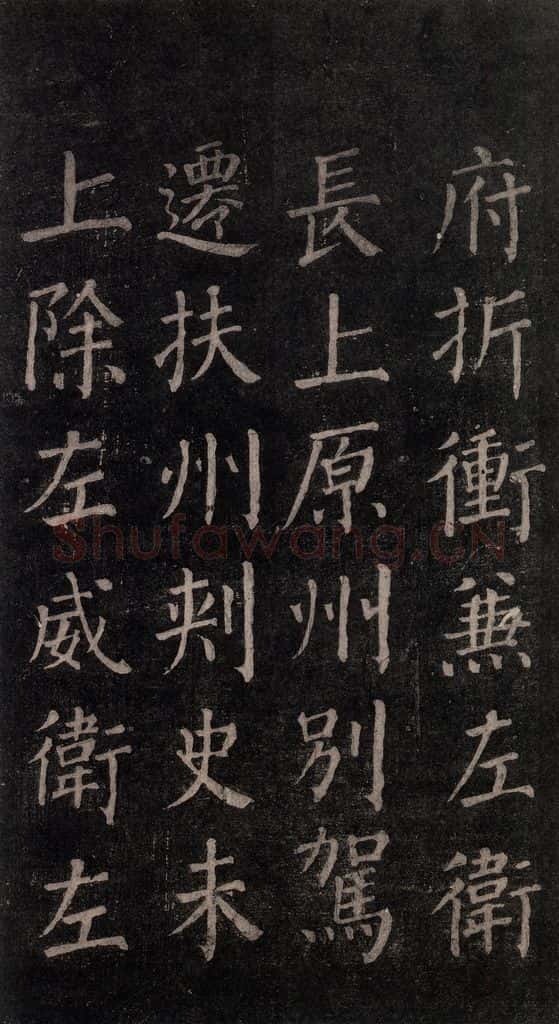 府折衝兼左衛
長上原州別駕
遷扶州刾史未
上除左威衛左
Shufawang.CN